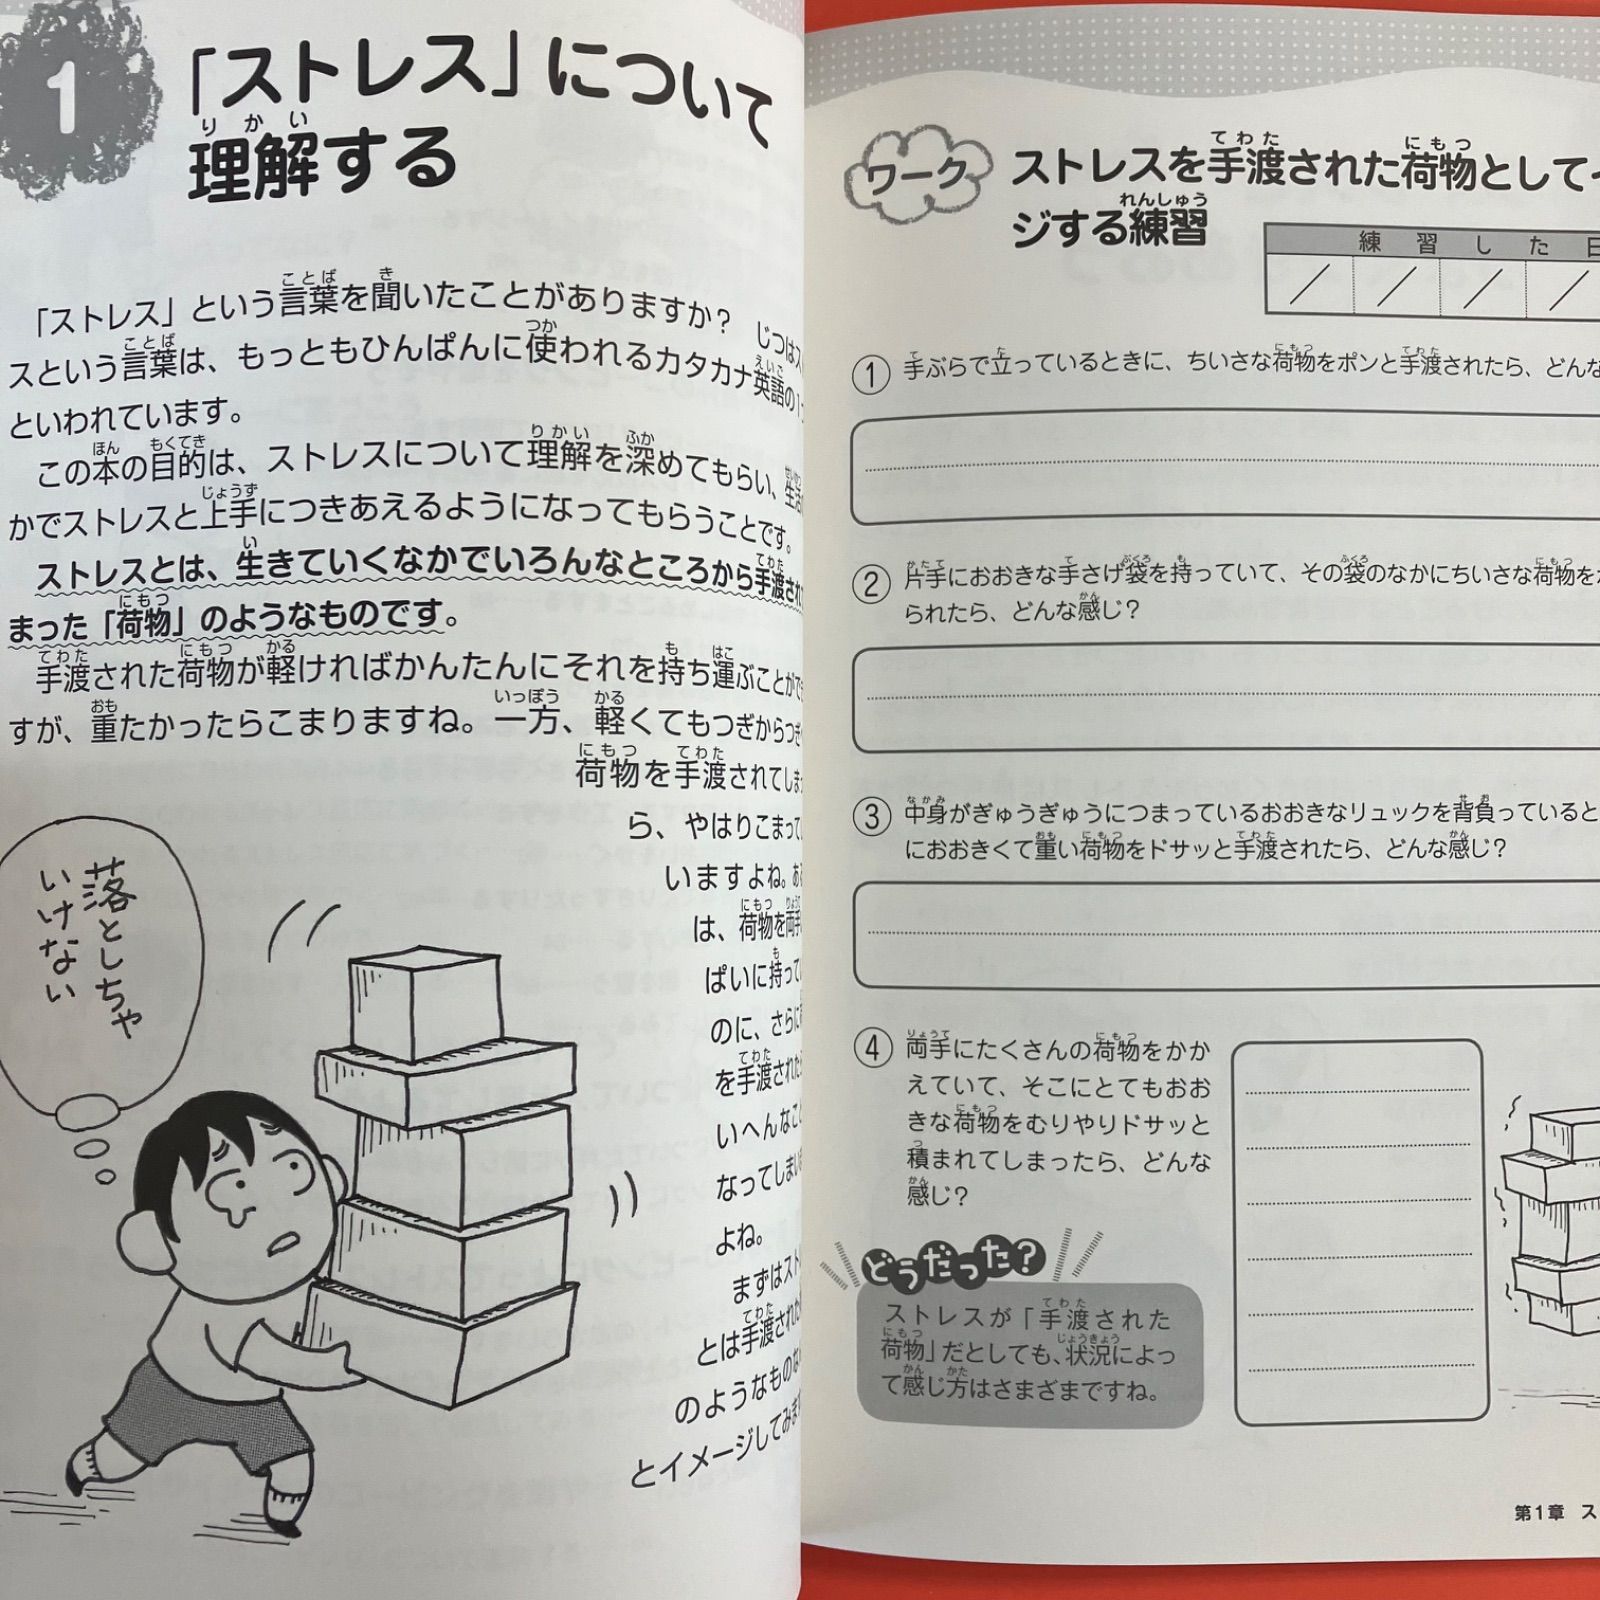 1
「ストレス」について
理解する
「ストレス」という言葉を聞いたことがありますか？ じつはス
スという言葉は、もっともひんぱんに使われるカタカナ英語の1
といわれています。
この本の目的は、ストレスについて理解を深めてもらい、生活
かでストレスと上手につきあえるようになってもらうことです。
ストレスとは、生きていくなかでいろんなところから手渡され
まった「荷物」のようなものです。
手渡された荷物が軽ければかんたんにそれを持ち運ぶことがで
すが、重たかったらこまりますね。一方、軽くてもつぎからつぎ
荷物を手渡されてしま
ら、やはりこまって
いますよね。ある
は、荷物を両手
ぱいに持って
のに、さらに
を手渡された
いへんなこと
なってしまい
よね。
まずはスト
とは手渡された
のようなものな
とイメージしてみま
落としちゃ
いけない
ワーク
ストレスを手渡された荷物として
ジする練習
練習した日
① 手ぶらで立っているときに、ちいさな荷物をポンと手渡されたら、どんな
② 片手におおきな手さげ袋を持っていて、その袋のなかにちいさな荷物を
られたら、どんな感じ？
③ 中身がぎゅうぎゅうにつまっているおおきなリュックを背負っていると
におおきくて重い荷物をドサッと手渡されたら、どんな感じ？
④ 両手にたくさんの荷物をかか
えていて、そこにとてもおお
きな荷物をむりやりドサッと
積まれてしまったら、どんな
感じ？
どうだった？
ストレスが「手渡された
荷物」だとしても、状況によっ
て感じ方はさまざまですね。
第1章 ス